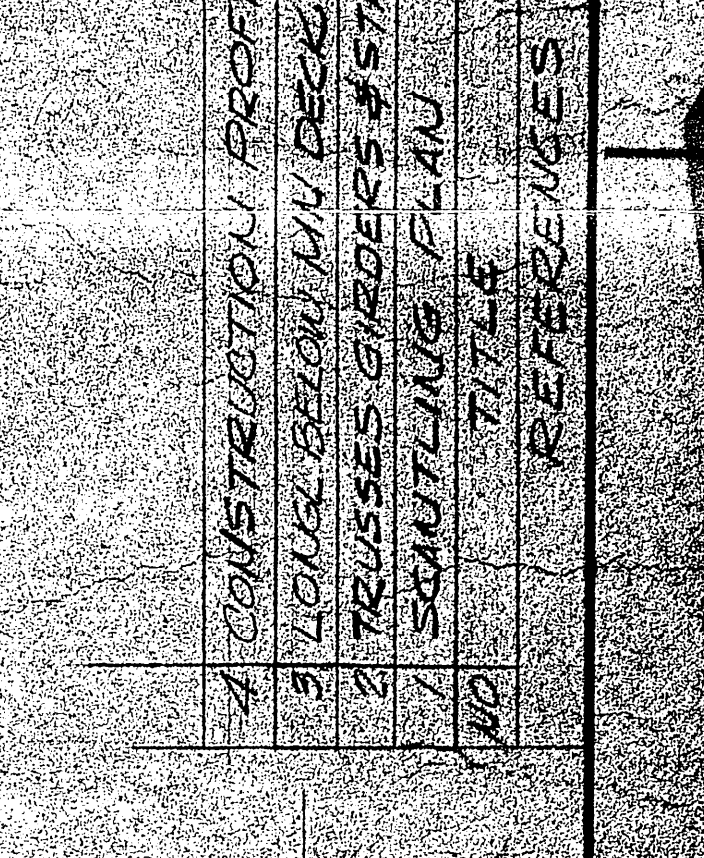 4 CONSTRUCTION PROF
3 LONGL BELOW MN DECK
2 TRUSSES GIRDERS & ST
1 SCANTLING PLAN
NO TITLE
REFERENCES